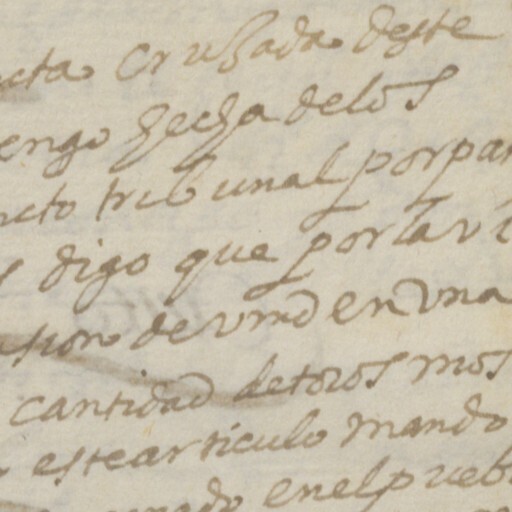 cta cruzada deste
engo hecha de los
ncto tribunal por par
digo que por la vi
de vmd en una
cantidad de toros mos
este articulo mando
en el pueb